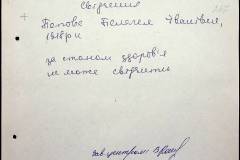 Свідчення
Попова Пелагея Іванівна,
1918 р.н
за станом здоров'я
не може свідчити
зав. центром: